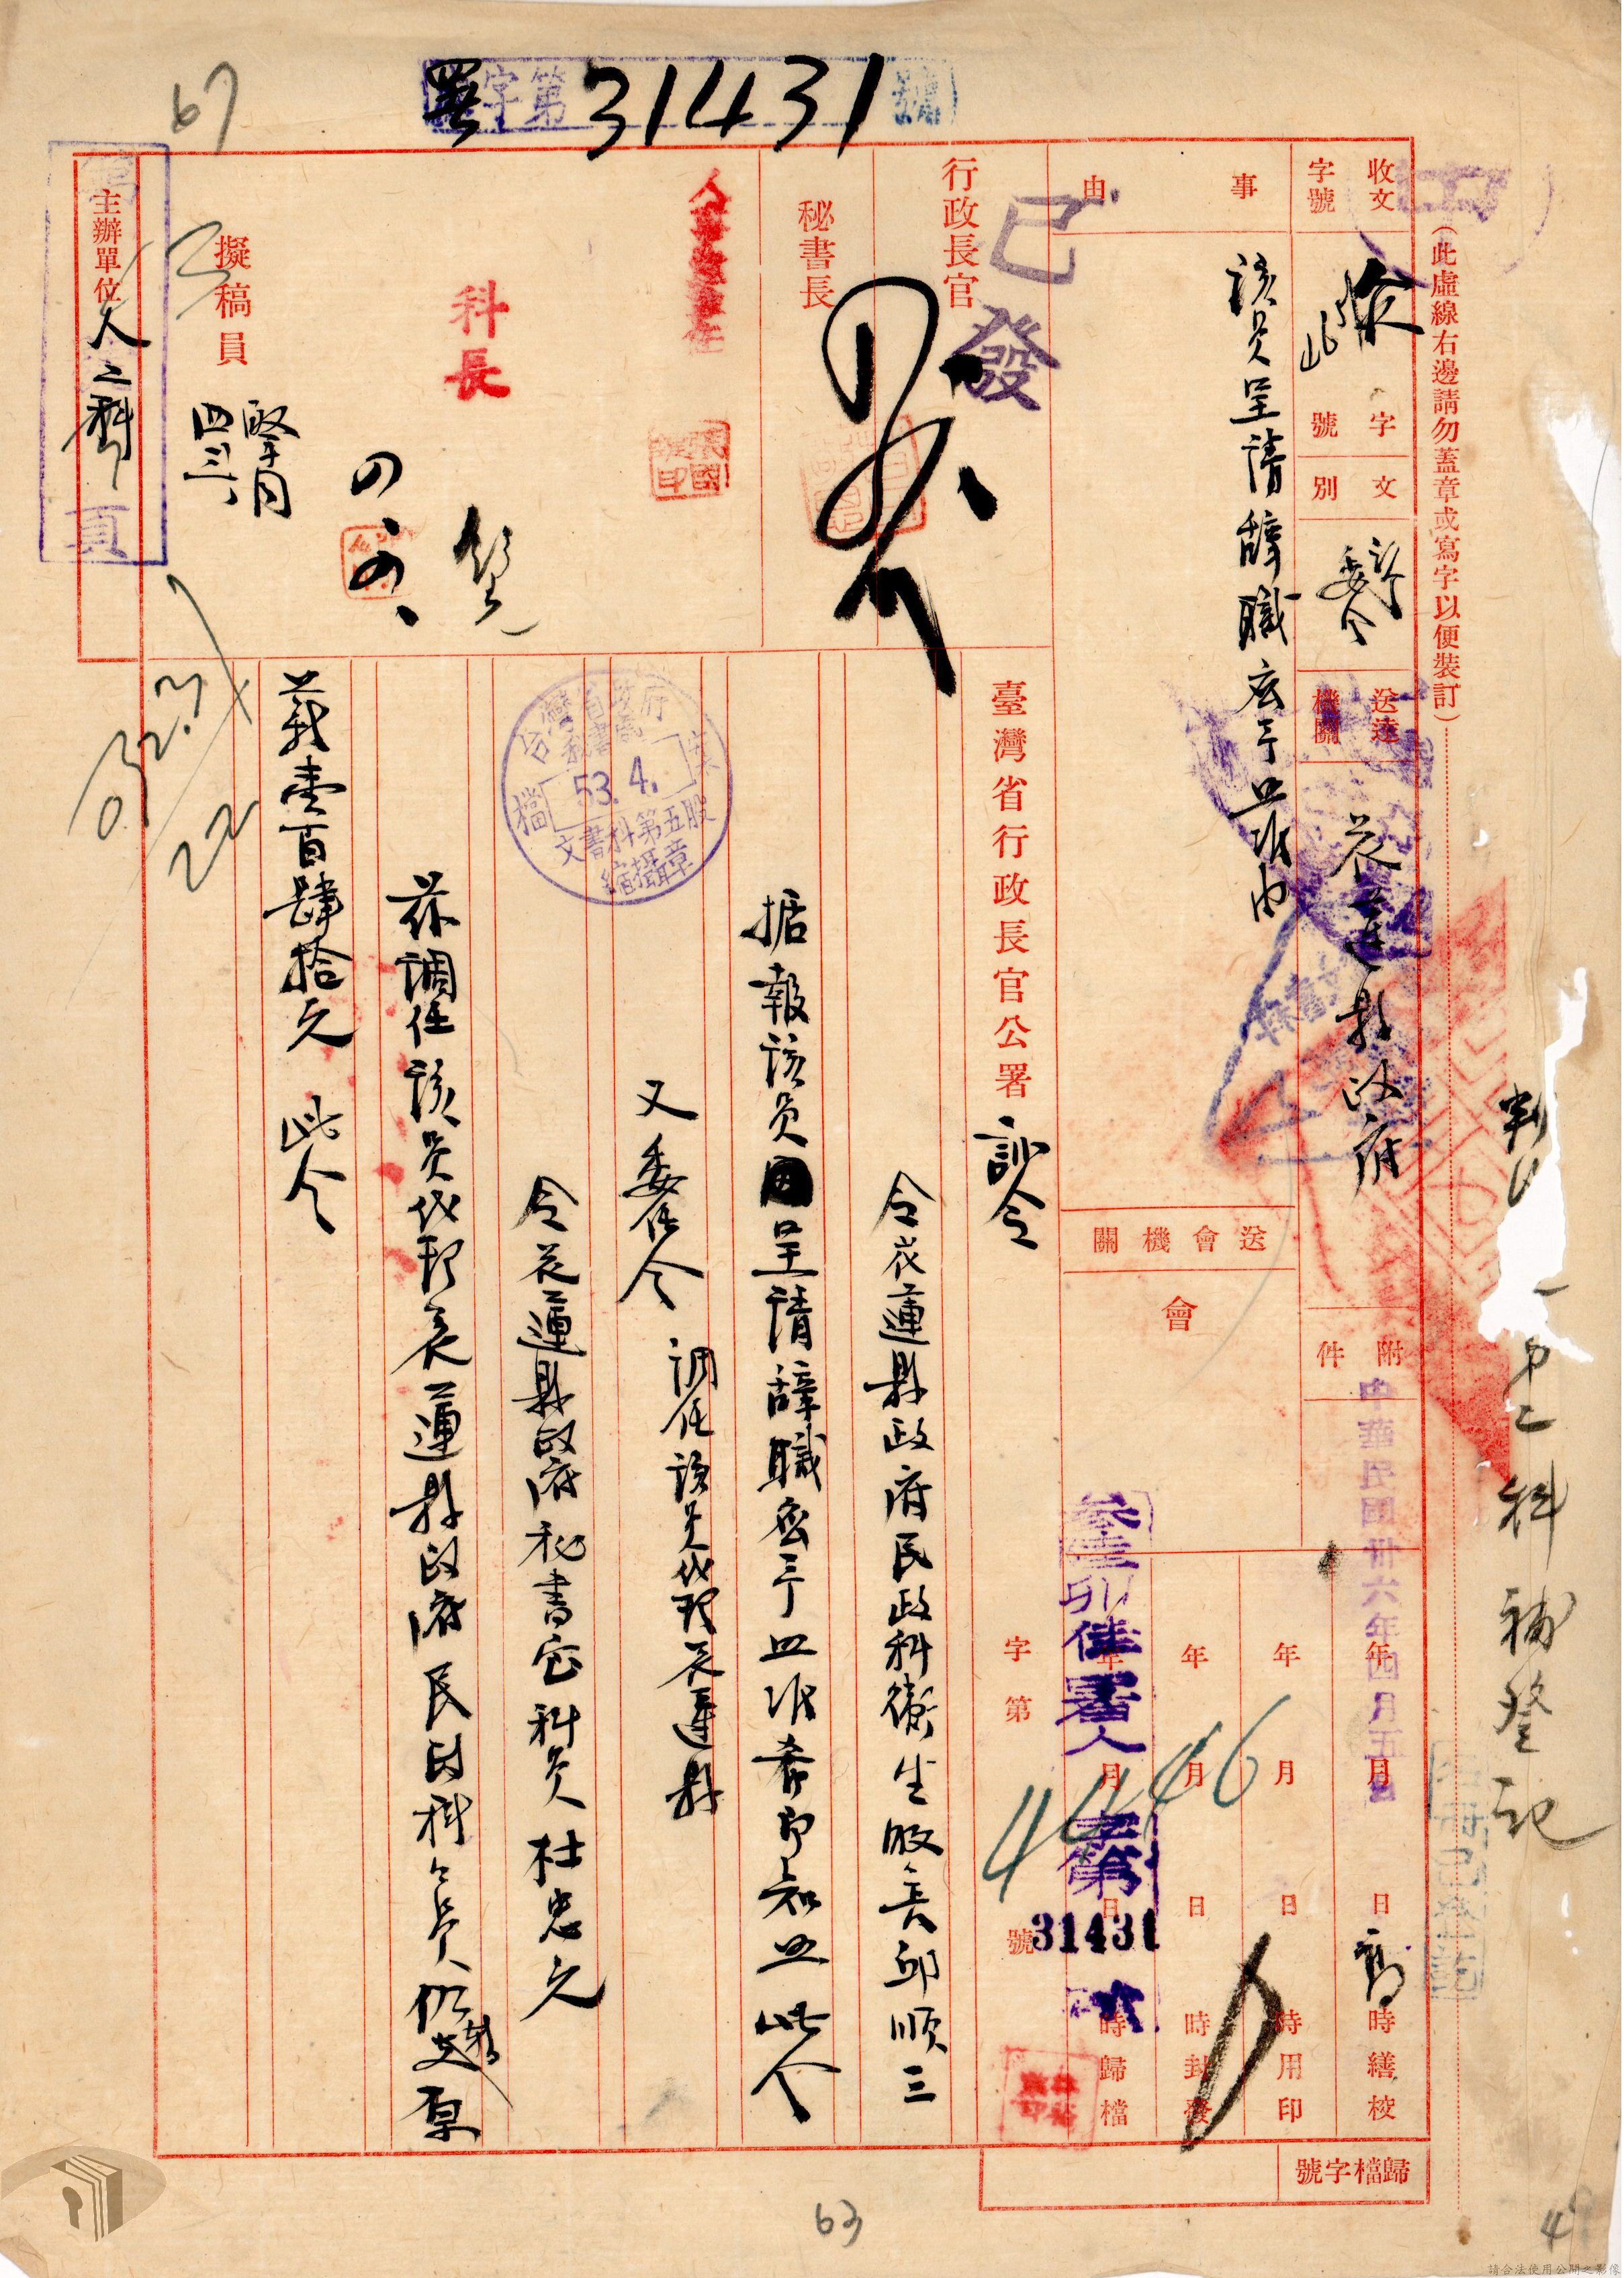 署字第31431號
67
(此虛線右邊請勿蓋章或寫字以便裝訂)
第二科補登記
收文字號
字號
文別
訓令
委令
送達機關
花蓮縣政府
附件
中華民國卅六年四月五日
事由
該員呈請辭職應予照准由
送會機關
會
年月日時繕校
年月日時用印
年月日時封發
年月日時歸檔
參陸卯佳署人字第31431號
4446
字第號
歸檔字號
已發
行政長官
秘書長
科長
擬稿員
主辦單位
人二科
頁
臺灣省行政長官公署
訓令
令花蓮縣政府民政科衛生股長邱順三
据報該員呈請辭職應予照准希即知照此令
又委任令 調任該員代理花蓮縣
令花蓮縣政府秘書室科員杜忠久
茲調任該員代理花蓮縣政府民政科科員仍支原
薪壹百肆拾元 此令
台灣省政府秘書處
53.4.
檔案
文書科第五股
縮攝章
032.3
22
63
請合法使用公開之影像